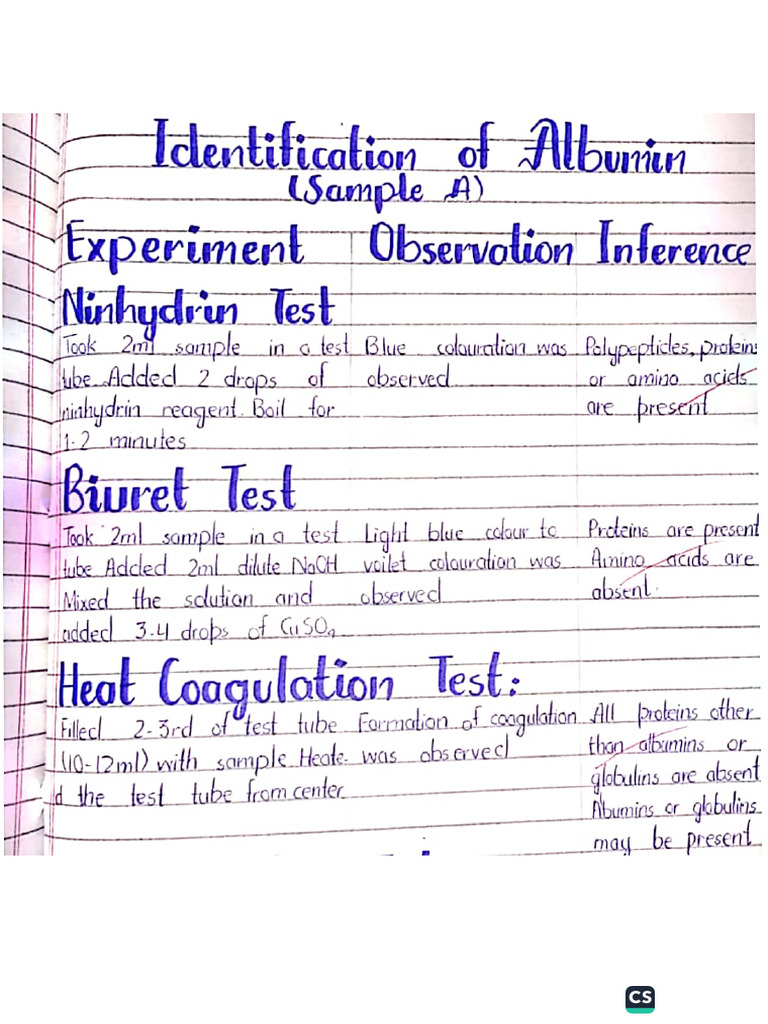 Identification of Albumin
(Sample A)
Experiment Observation Inference
Ninhydrin Test
Took 2ml sample in a test Blue colouration was Polypeptides, proteins
tube. Added 2 drops of observed or amino acids
ninhydrin reagent. Boil for are present
1-2 minutes
Biuret Test
Took 2ml sample in a test Light blue colour to Proteins are present
tube Added 2ml dilute NaOH voilet colouration was Amino acids are
Mixed the solution and observed absent.
added 3-4 drops of CuSO4
Heat Coagulation Test:
Filled 2-3rd of test tube Formation of coagulation All proteins other
(10-12ml) with sample Heate- was observed than albumins or
d the test tube from center globulins are absent
Abumins or globulins
may be present
CS